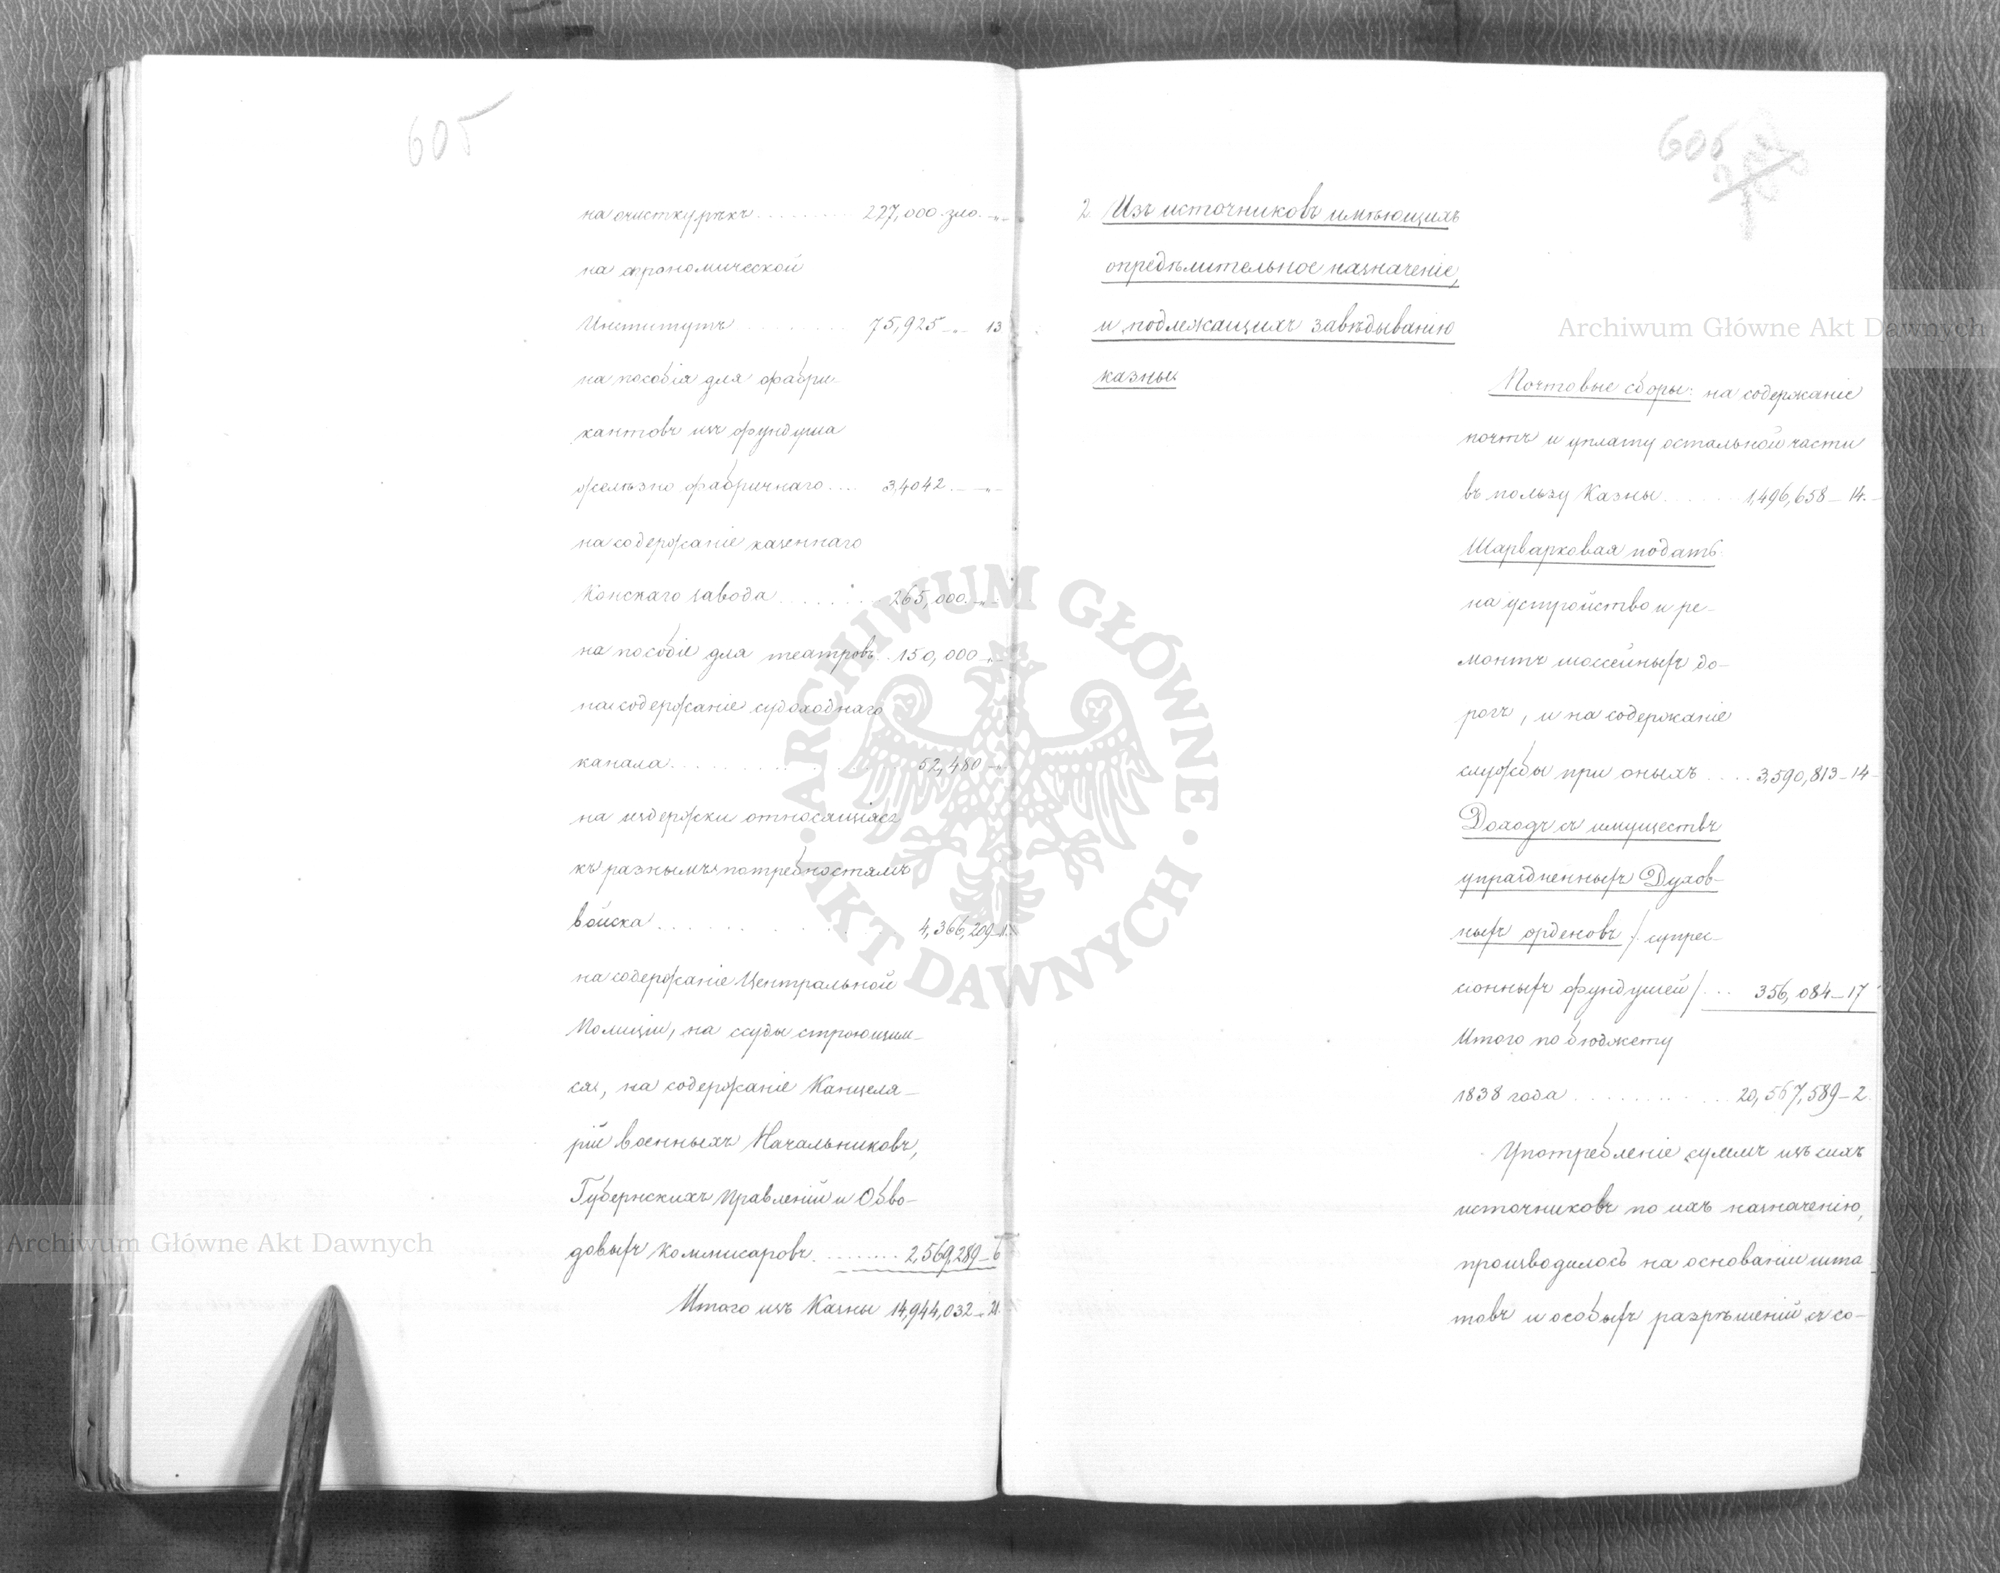 605
на очистку рѣкъ . . . . . . . . . 227,000 зло. -„-
на агрономической
Институтъ . . . . . . . . 75,925 -„- 13
на пособія для фабри-
кантовъ изъ фундуша
желѣзно фабричнаго . . . . 34042. -„-
на содержаніе казеннаго
Конскаго завода . . . . . . . . 265,000. -„-
на пособіе для театровъ . . 150,000 -„-
на содержаніе судоходнаго
канала . . . . . . . . . . . 52,480 -„-
на издержки относящіяся
къ разнымъ потребностямъ
войска . . . . . . . . . . . 4,366,209-1.
на содержаніе Центральной
Полиціи, на ссуды строющим-
ся, на содержаніе Канцеля-
рій военныхъ Начальниковъ,
Губернскихъ Правленій и Обво-
довыхъ Коммисаровъ. . . . . . . . 2,569,289-6
Итого изъ Казны 14,944,032-21.
606
2. Изъ источниковъ имѣющихъ
опредѣлительное назначеніе,
и подлежащихъ завѣдыванію
казны.
Почтовые сборы: на содержаніе
почтъ и уплату остальной части
въ пользу Казны . . . . . . 1,496,658-14.-
Шарварковая подать
на устройство и ре-
монтъ шоссейныхъ до-
рогъ, и на содержаніе
службы при оныхъ . . . . 3,590,813-14-
Доходъ съ имуществъ
упраздненныхъ Духов-
ныхъ орденовъ /: супрес-
сіонныхъ фундушей / . . . 356,084-17
Итого по бюджету
1838 года . . . . . . . . . . . 20,567,589-2.
Употребленіе суммъ изъ сихъ
источниковъ по ихъ назначенію,
производилось на основаніи шта-
товъ и особыхъ разрѣшеній съ со-
Archiwum Główne Akt Dawnych
Archiwum Główne Akt Dawnych
ARCHIWUM GŁÓWNE · AKT DAWNYCH ·